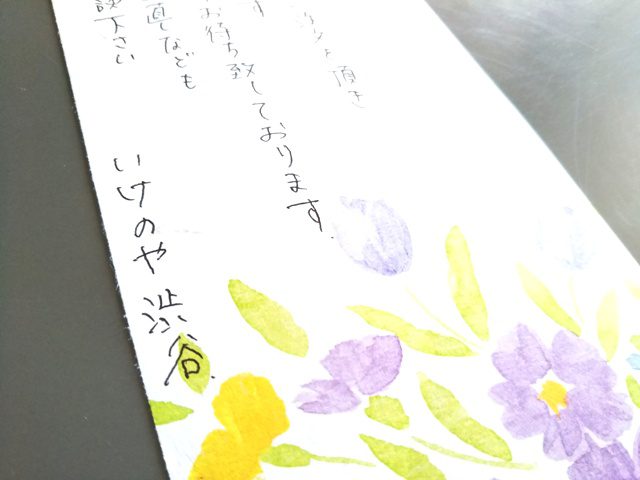 頂き
す
お待ち致しております.
直しなども
認下さい
いけのや 渋谷.